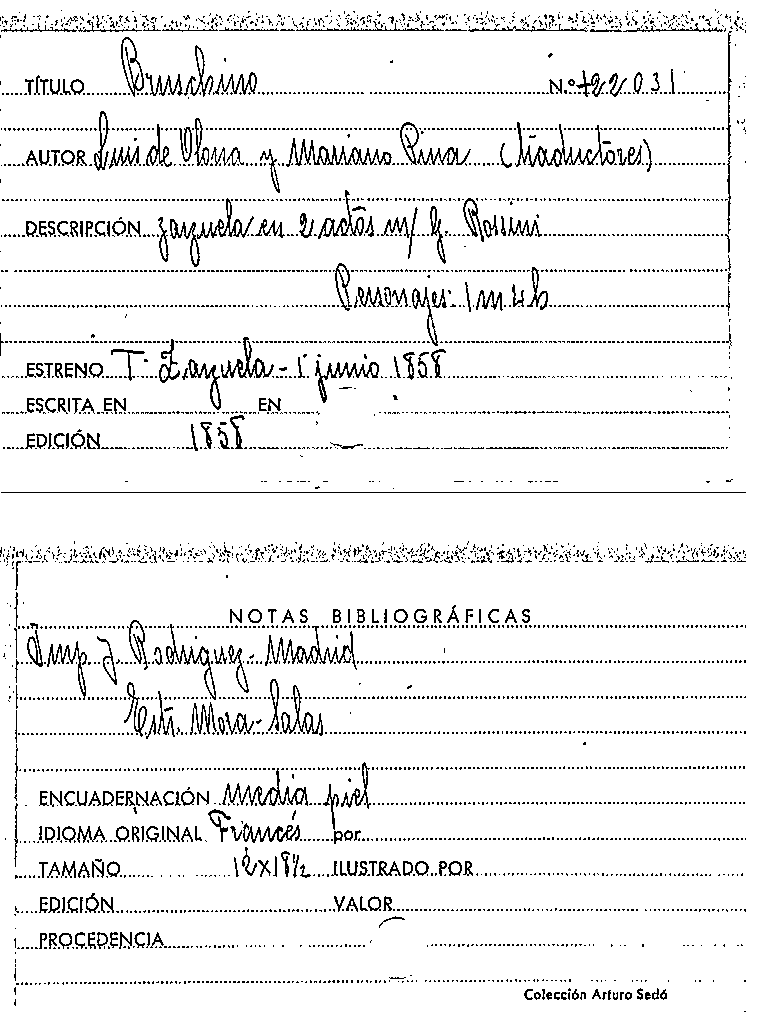 TÍTULO Bruschino N.º 422031
AUTOR Luis de Olona y Mariano Pina (traductores)
DESCRIPCIÓN zarzuela en 2 actos m/ G. Rossini
Personajes: 1 m 4 h
ESTRENO T. Zarzuela - 1 junio 1858
ESCRITA EN EN
EDICIÓN 1858
NOTAS BIBLIOGRÁFICAS
Imp. J. Rodriguez - Madrid
Estr. Mora - Salas
ENCUADERNACIÓN media piel
IDIOMA ORIGINAL Francés por
TAMAÑO 12 x 18 1/2 ILUSTRADO POR
EDICIÓN VALOR
PROCEDENCIA
Colección Arturo Sedó